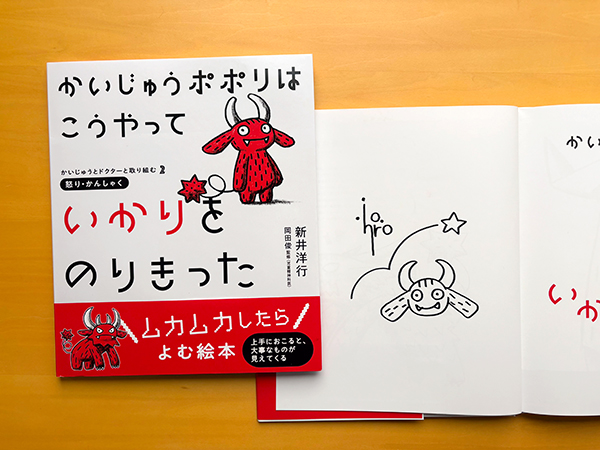 かいじゅうポポリは
こうやって
かいじゅうとドクターと取り組む 2
怒り・かんしゃく
いかりを
のりきった
新井洋行
岡田俊 監修(児童精神科医)
ムカムカしたら
よむ絵本
上手におこると、
大事なものが
見えてくる
hiro
かい
いか